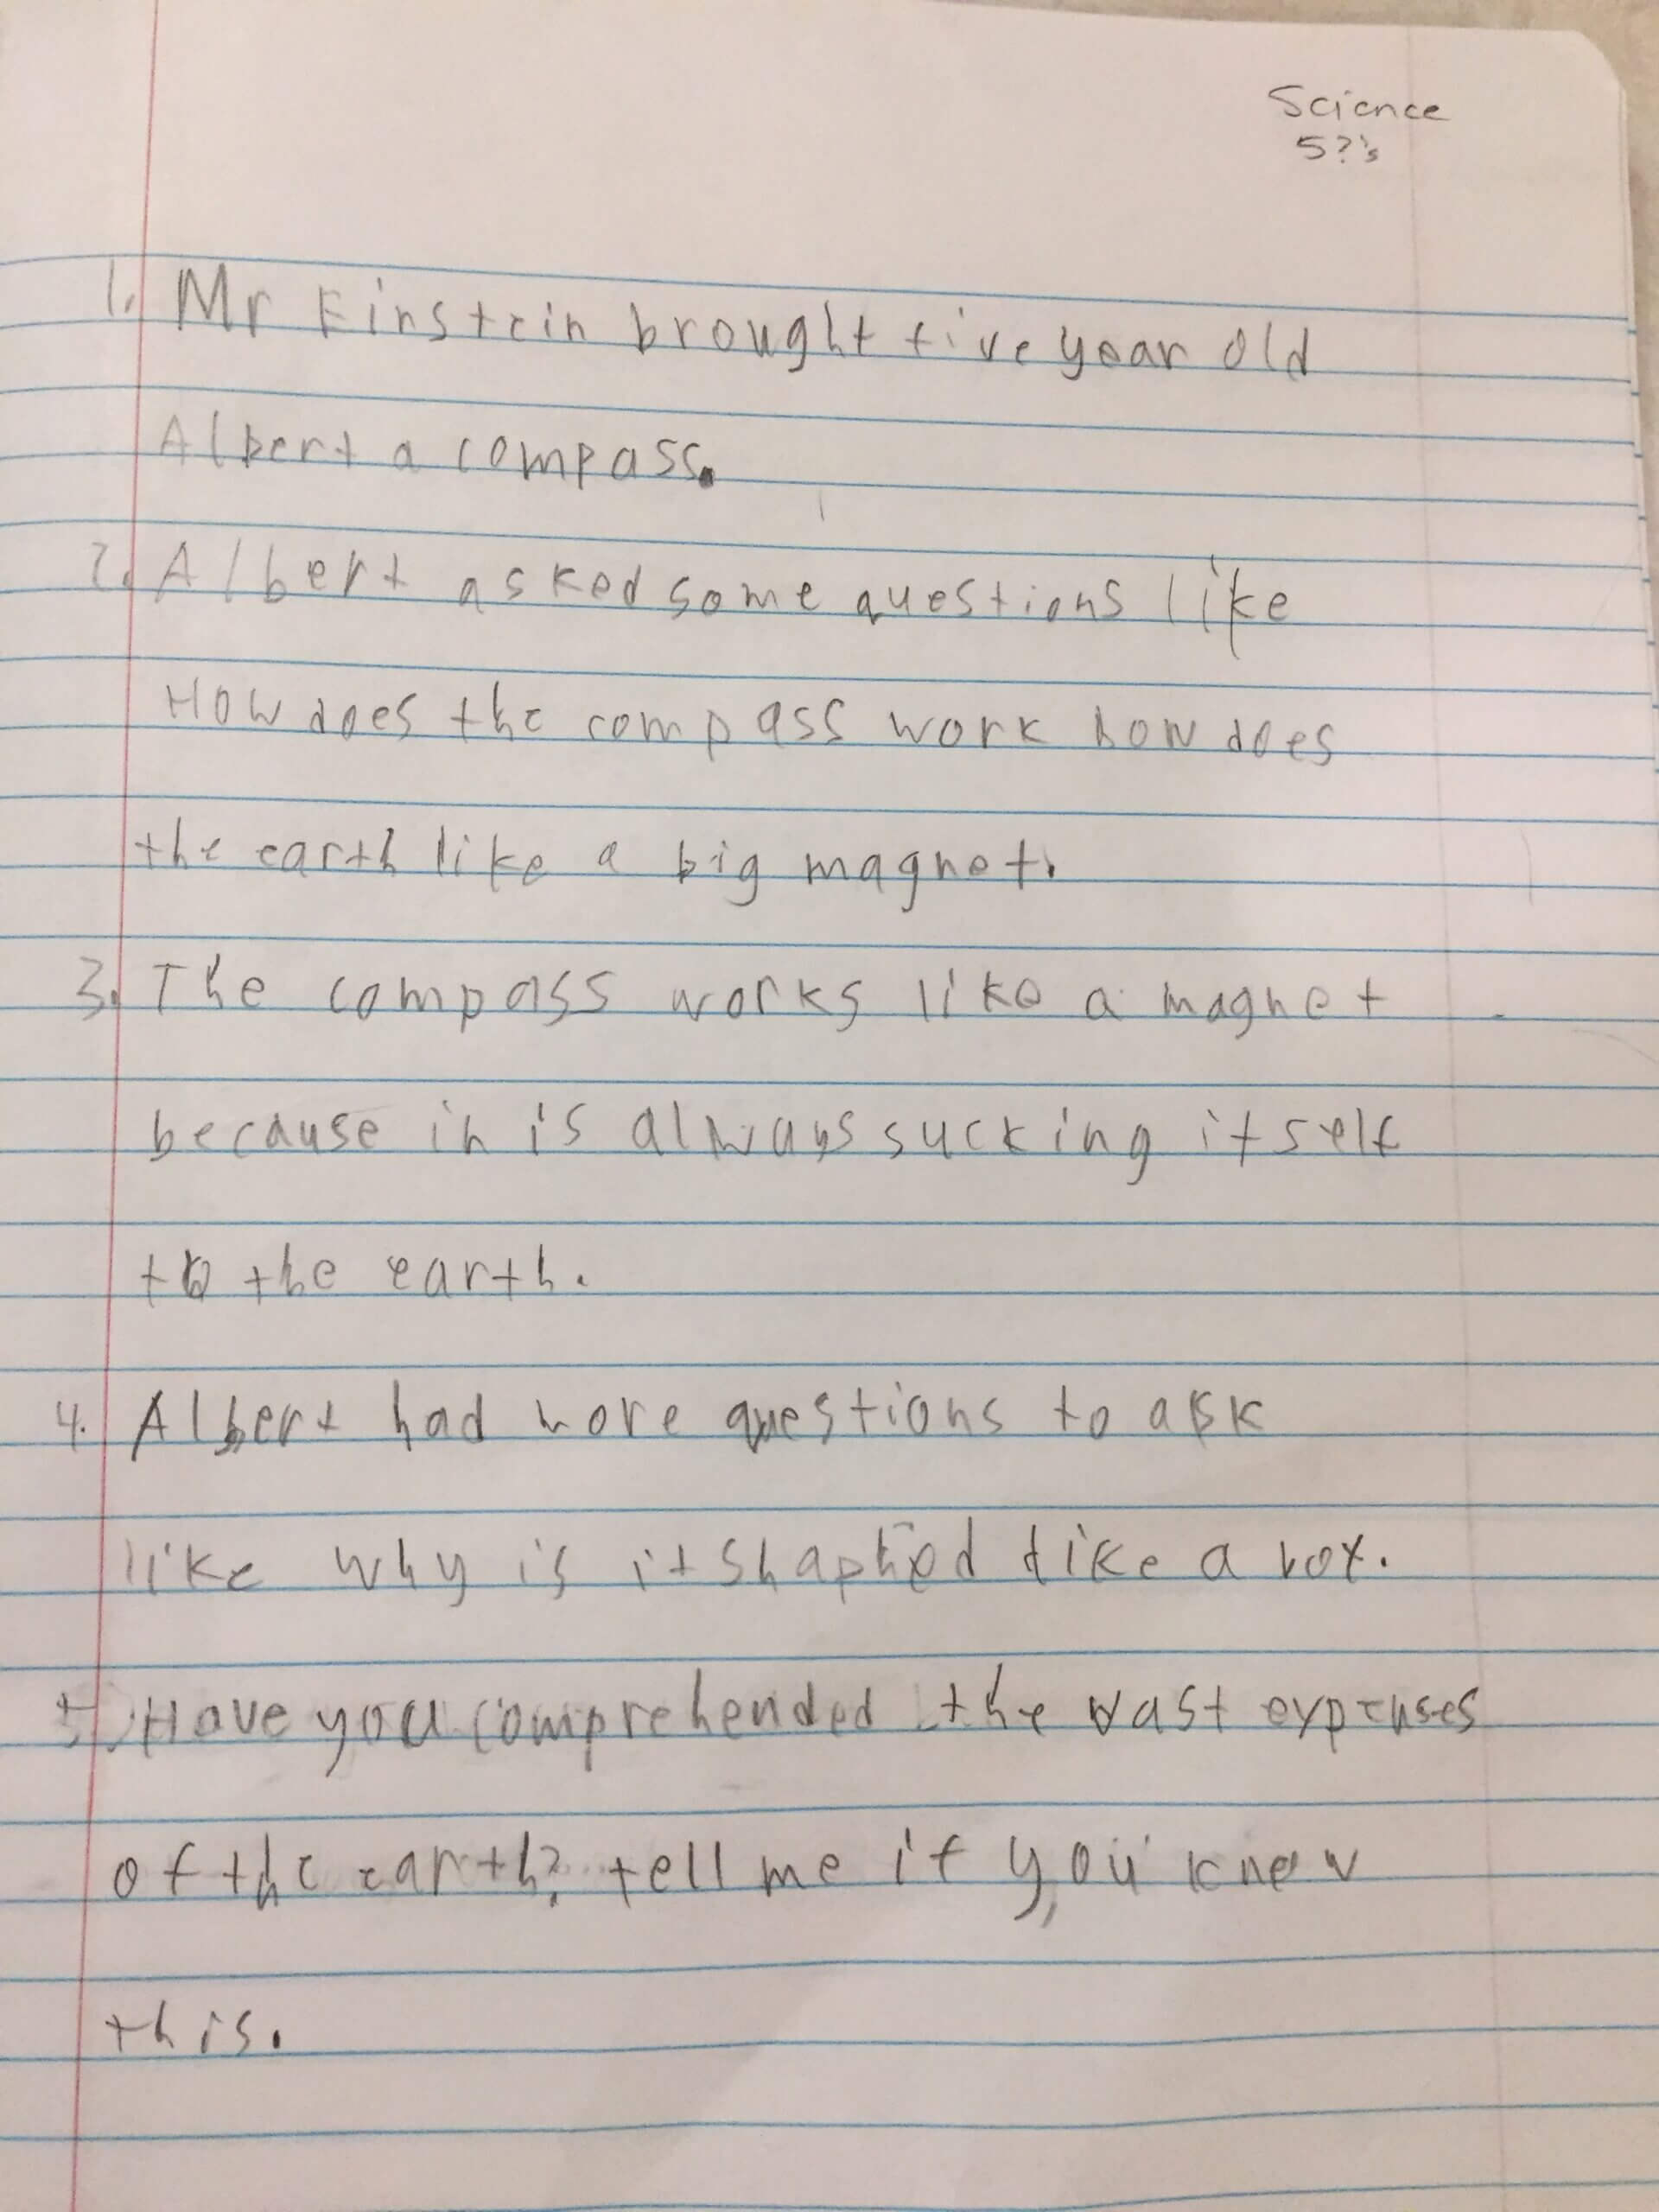 Science
5?'s
1. Mr Einstein brought five year old
Albert a compass.
2. Albert asked some questions like
How does the compass work how does
the earth like a big magnet.
3. The compass works like a magnet
because in is always sucking itself
to the earth.
4. Albert had more questions to ask
like why is it shaphed like a box.
5. Have you comprehended the vast expenses
of the earth? tell me if you knew
this.